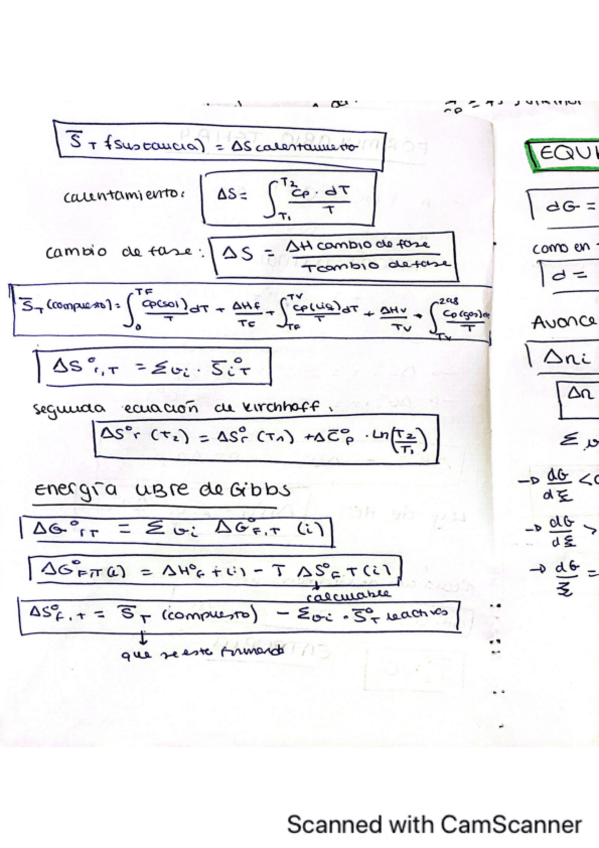 S̅T (sustancia) = ΔS calentamiento
calentamiento: ΔS = ∫T1^T2 Cp · dT / T
cambio de fase: ΔS = ΔH cambio de fase / T cambio de fase
S̅T (compuesto) = ∫0^TF Cp(sol)/T dT + ΔHF/TF + ∫TF^TV Cp(liq)/T dT + ΔHV/TV + ∫TV^298 Cp(gas)/T
ΔS°r,T = Σνi · S̅i°T
segunda ecuación de Kirchhoff.
ΔS°r (T2) = ΔS°r (T1) + ΔC̅°p · Ln(T2/T1)
Energía libre de Gibbs
ΔG°rT = Σνi ΔG°F,T (i)
ΔG°F,T(i) = ΔH°F,T(i) - T ΔS°F,T(i)
calculable
ΔS°F,T = S̅T (compuesto) - Σνi · S̅°T reactivos
que se este formando
EQUI
dG =
como en
d =
Avance
Δni
Δn
Σ
→ dG/dξ <
→ dG/dξ >
→ dG/ξ =
Scanned with CamScanner